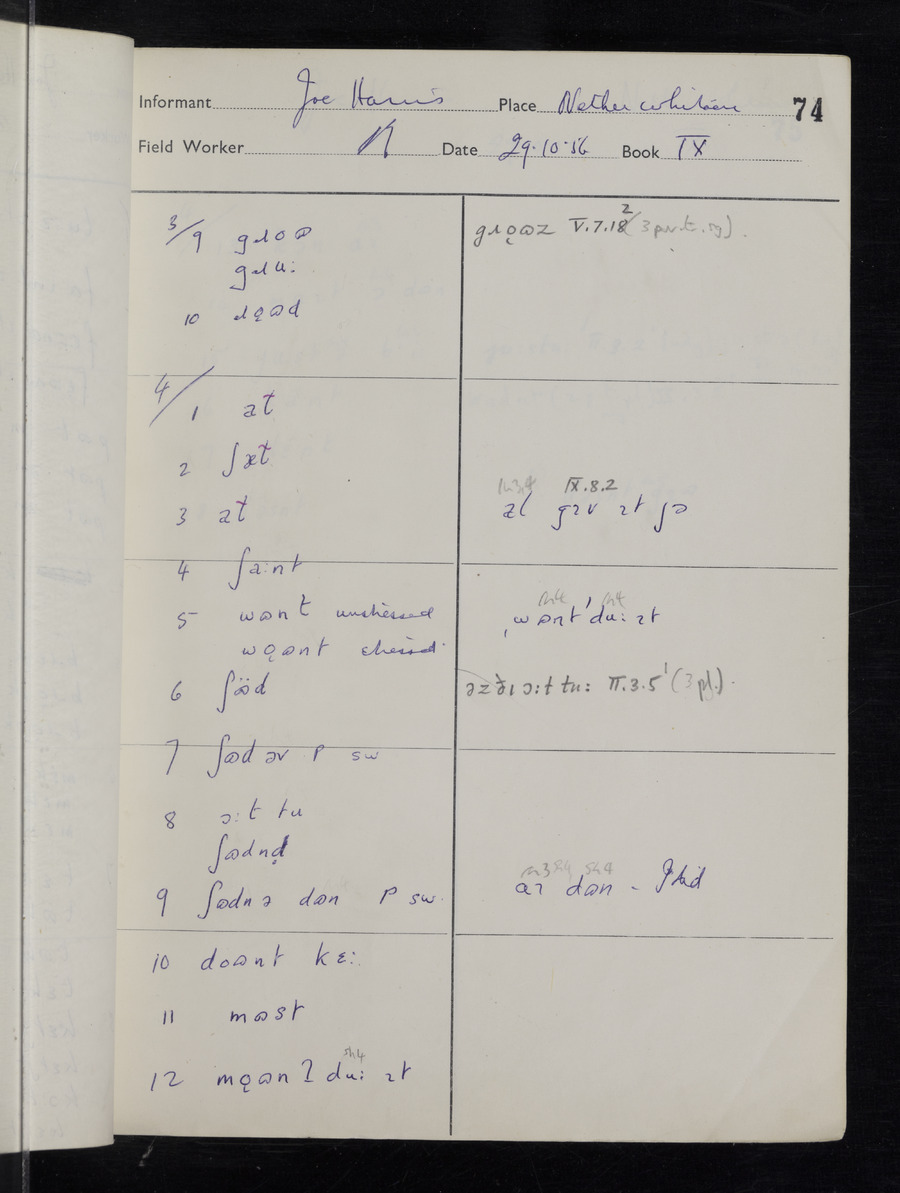 Informant Joe Harris Place Nether Whitacre 74
Field Worker Date 29.10.56 Book IX
3/9 gɹoɷ
gɹu:
10 ɹǫɷd
gɹǫɷz V.7.18 2 (3 pr.t.sg).
4/1 at
2 ʃæt
3 at
IX.8.2
4 ʃa:nt
5 wɷnt unstressed
wǫɷnt stressed
ˌwɷnt ˈdu: ɪt
6 ʃɷ̈d
əz ðɪ ɔ:t tu: II.3.5 1 (3 pl.).
7 ʃɷd əv P sw
8 ɔ:t tu
ʃɷdnd
9 ʃɷdnə dɷn P sw.
dɷn -
10 doɷnt kɛ:
11 mɷst
12 mǫɷnʔ du: ɪt